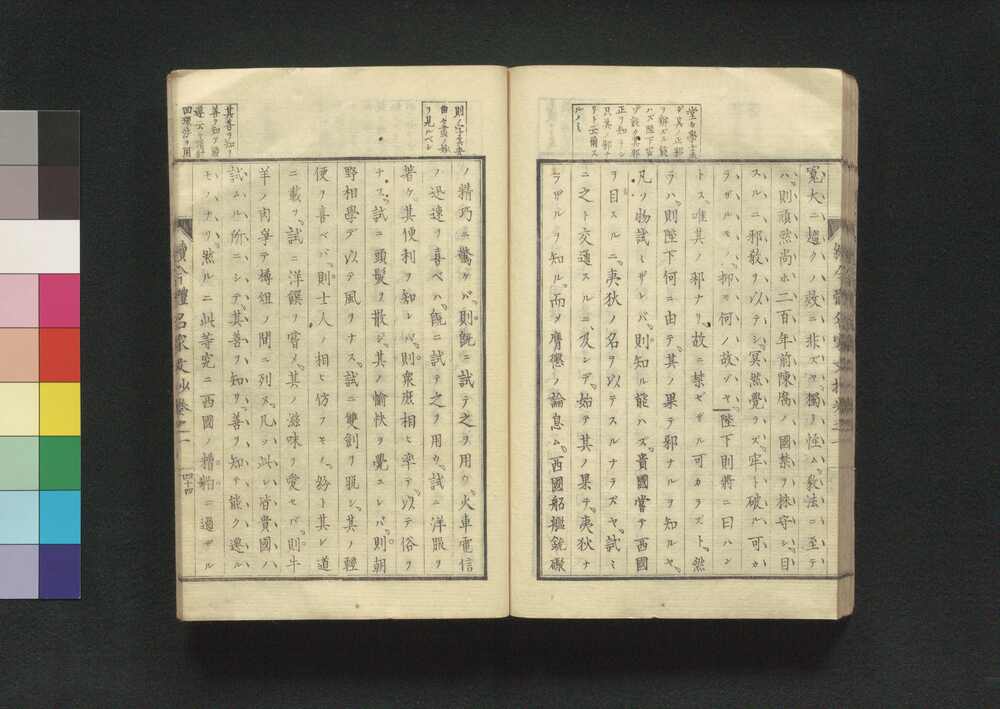 寛大ニ趨クハ、致ニ非ズヤ、獨リ怪ム、教法ニ至テ
ハ、則頑然尚ホ二百年前陳腐ノ國禁ヲ株守シ、目
スルニ邪教ヲ以テシ、冥然覺ラズ、牢ト破ル可カ
ラザルモノ、抑モ何ノ故ゾヤ、陛下則將ニ曰ハン
トス、唯其ノ邪ナリ、故ニ禁ゼザル可カラズト、然
ラハ、則陛下何ニ由テ、其ノ果テ邪ナルヲ知ルヤ、
凡ソ物試ミザレバ、則知ル能ハズ、貴國嘗テ西國
ヲ目スルニ、夷狄ノ名ヲ以テスルナラズヤ、試ミ
ニ之ト交通スルニ及ンデ、始テ其ノ果テ夷狄ナ
ラザルヲ知ル、而メ膺懲ノ論息ム、西國船艦銃礮
則ノ字
ヲ見ルベシ
ノ精巧ニ驚ケバ、則既ニ試テ之ヲ用ウ、火車電信
ノ迅速ヲ喜ベハ、既ニ試テ之ヲ用ウ、試ニ洋服ヲ
著ケ、其便利ヲ知レバ、則衆庶相ヒ率テ、以テ俗ヲ
ナス、試ニ頭髮ヲ散シ、其ノ愉快ヲ覺ユレバ、則朝
野相學デ以テ風ヲナス、試ニ雙劍ヲ脱シ、其ノ輕
便ヲ喜ベバ、則士人ノ相ヒ仿フモノ、紛ト其レ道
ニ載ツ、試ニ洋饌ヲ嘗メ、其ノ滋味ヲ愛セバ、則牛
羊ノ肉爭テ樽俎ノ間ニ列ス、凡ソ此レ皆貴國ノ
試ムル所ニシテ、其善ヲ知リ、善ヲ知テ能ク遷ル
モノナリ、然ルニ此等究ニ西國ノ糟粕ニ過ザル
其善ヲ知リ
續今體名家文抄卷之一
四十四